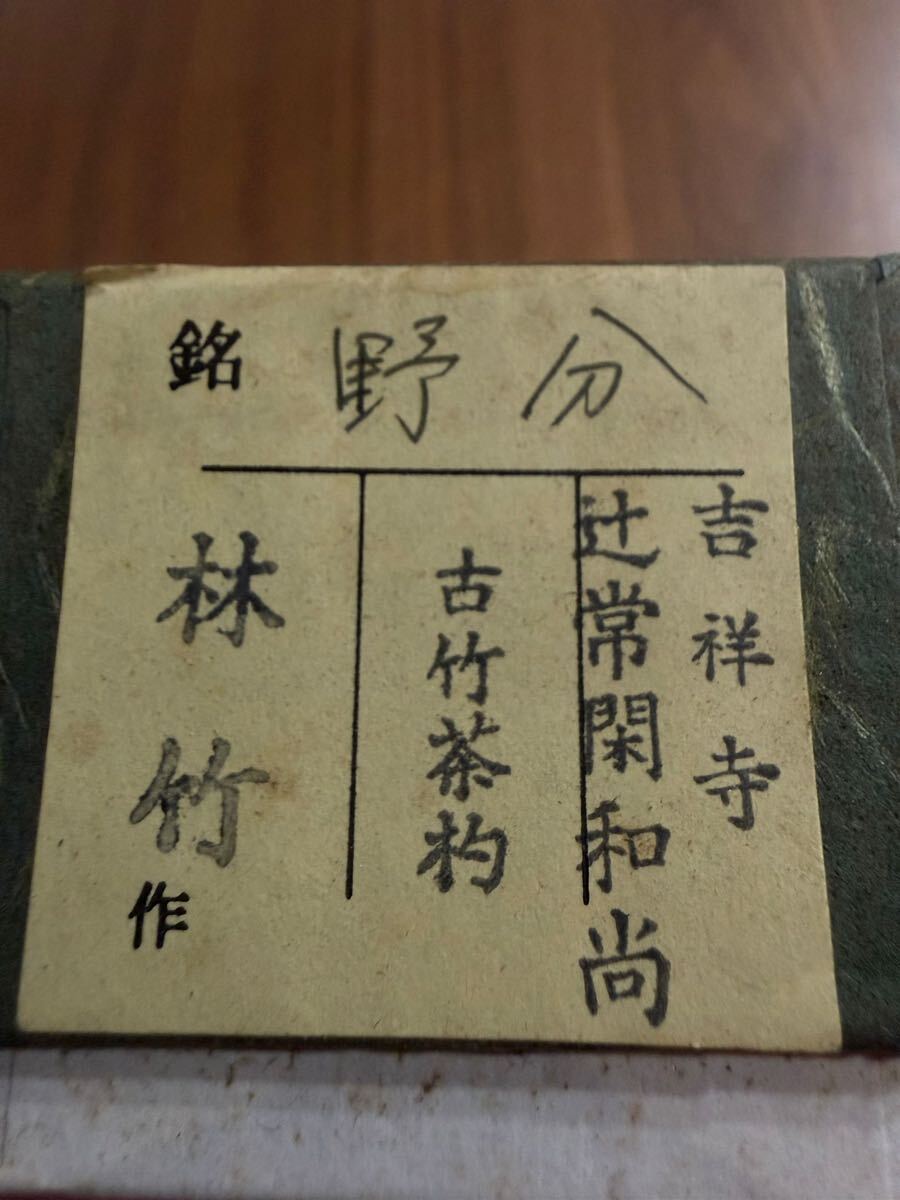 銘 野分
吉祥寺
辻常閑和尚
古竹茶杓
林竹作